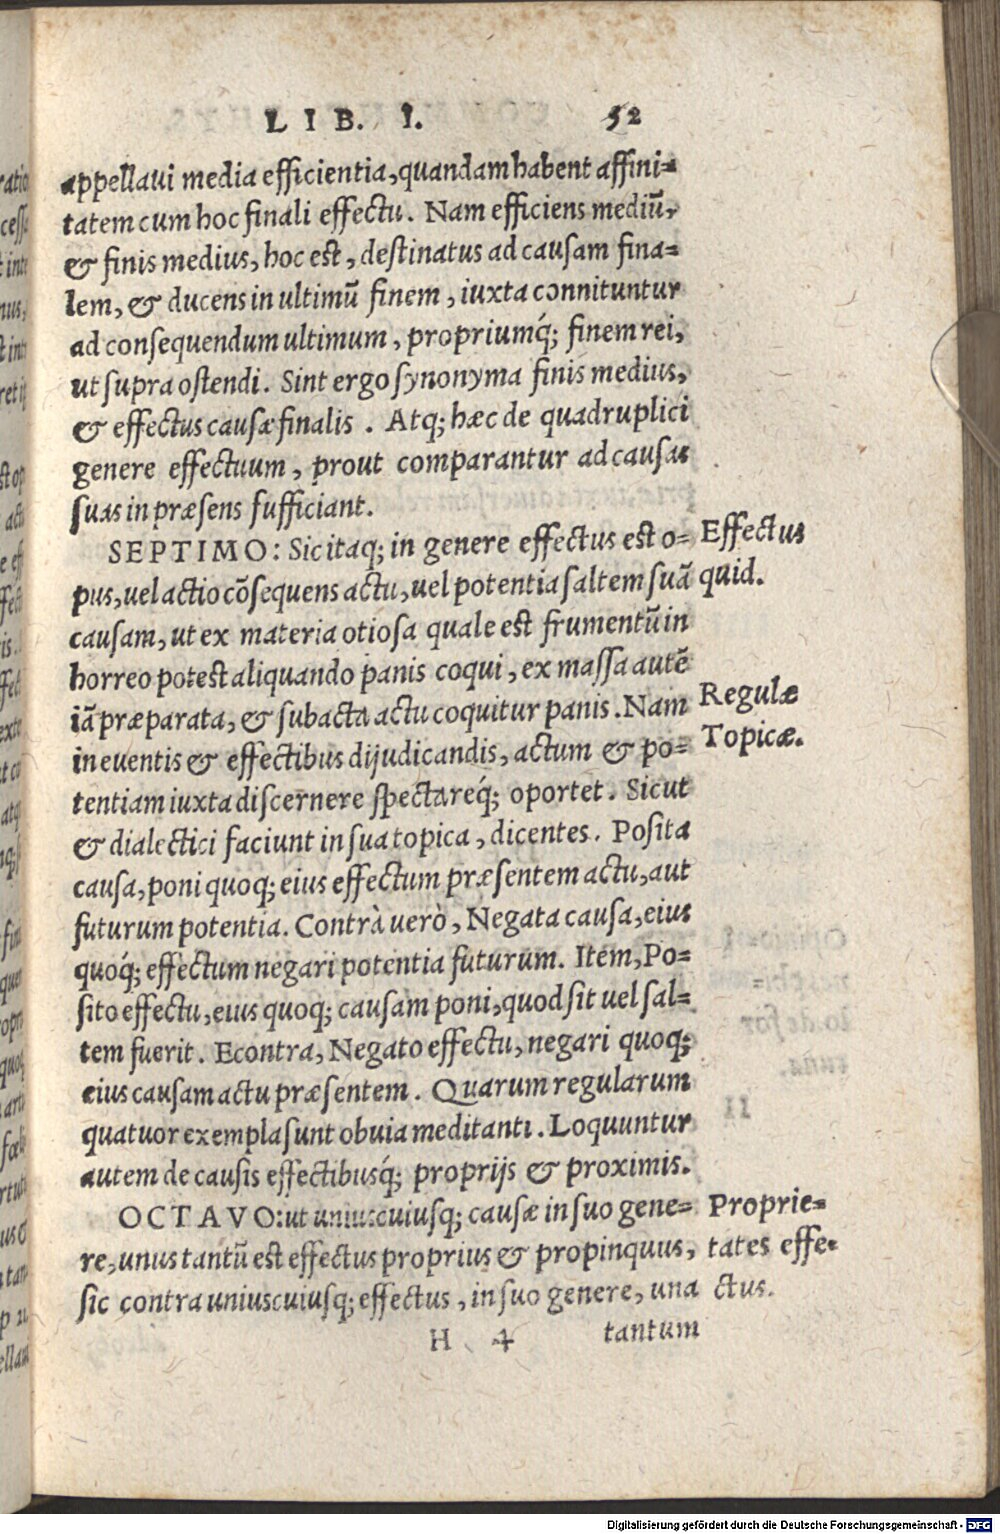 LIB. I. 52
appellaui media efficientia, quandam habent affini-
tatem cum hoc finali effectu. Nam efficiens mediũ,
& finis medius, hoc est, destinatus ad causam fina-
lem, & ducens in ultimũ finem, iuxta connituntur
ad consequendum ultimum, propriumq́; finem rei,
ut supra ostendi. Sint ergo synonyma finis medius,
& effectus causæ finalis. Atq; hæc de quadruplici
genere effectuum, prout comparantur ad causas
suas in præsens sufficiant.
SEPTIMO: Sic itaq; in genere effectus est o- Effectus
pus, uel actio cõsequens actu, uel potentia saltem suã quid.
causam, ut ex materia otiosa quale est frumentũ in
horreo potest aliquando panis coqui, ex massa autẽ
iã præparata, & subacta actu coquitur panis. Nam Regulæ
in euentis & effectibus dijudicandis, actum & po- Topicæ.
tentiam iuxta discernere spectareq́; oportet. Sicut
& dialectici faciunt in sua topica, dicentes. Posita
causa, poni quoq; eius effectum præsentem actu, aut
futurum potentia. Contrà uerò, Negata causa, eius
quoq́; effectum negari potentia futurum. Item, Po-
sito effectu, eius quoq; causam poni, quod sit uel sal-
tem fuerit. Econtra, Negato effectu, negari quoq;
eius causam actu præsentem. Quarum regularum
quatuor exempla sunt obuia meditanti. Loquuntur
autem de causis effectibusq́; proprijs & proximis.
OCTAVO: ut uniuscuiusq; causæ in suo gene- Proprie-
re, unus tantũ est effectus proprius & propinquus, tates effe-
sic contra uniuscuiusq; effectus, in suo genere, una ctus.
H 4 tantum
Digitalisierung gefördert durch die Deutsche Forschungsgemeinschaft - DFG